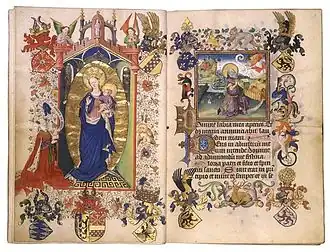 Domine labia mea aperies. Et
os meum annunciabit lau
dem tuam.
Deus in adiutorium
meum intende. Domine
ad adiuvandum me festina.
Gloria patri et filio et spiri
tui sancto. Sicut erat in pri
cipio et nunc et semper et in